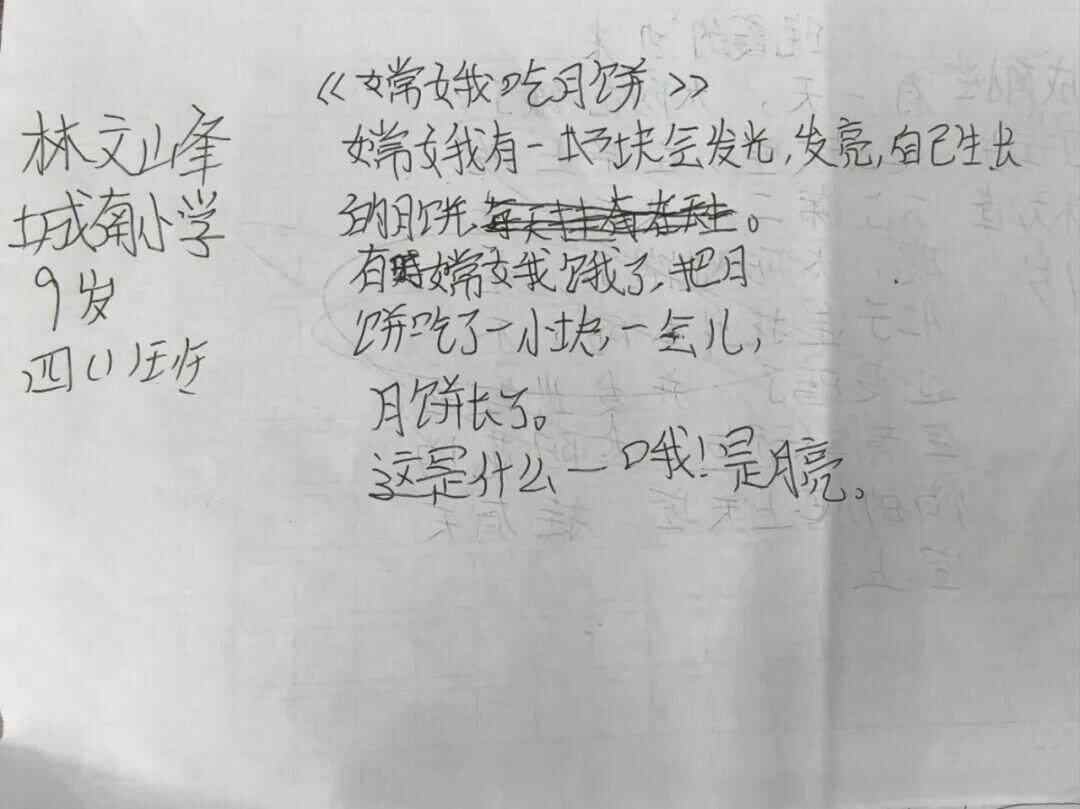 《嫦娥吃月饼》
林文峰
城南小学
9岁
四(1)班
嫦娥有一块会发光,发亮,自己生长
的月饼。
有时嫦娥饿了,把月
饼吃了一小块,一会儿,
月饼长了。
这是什么—哦!是月亮。